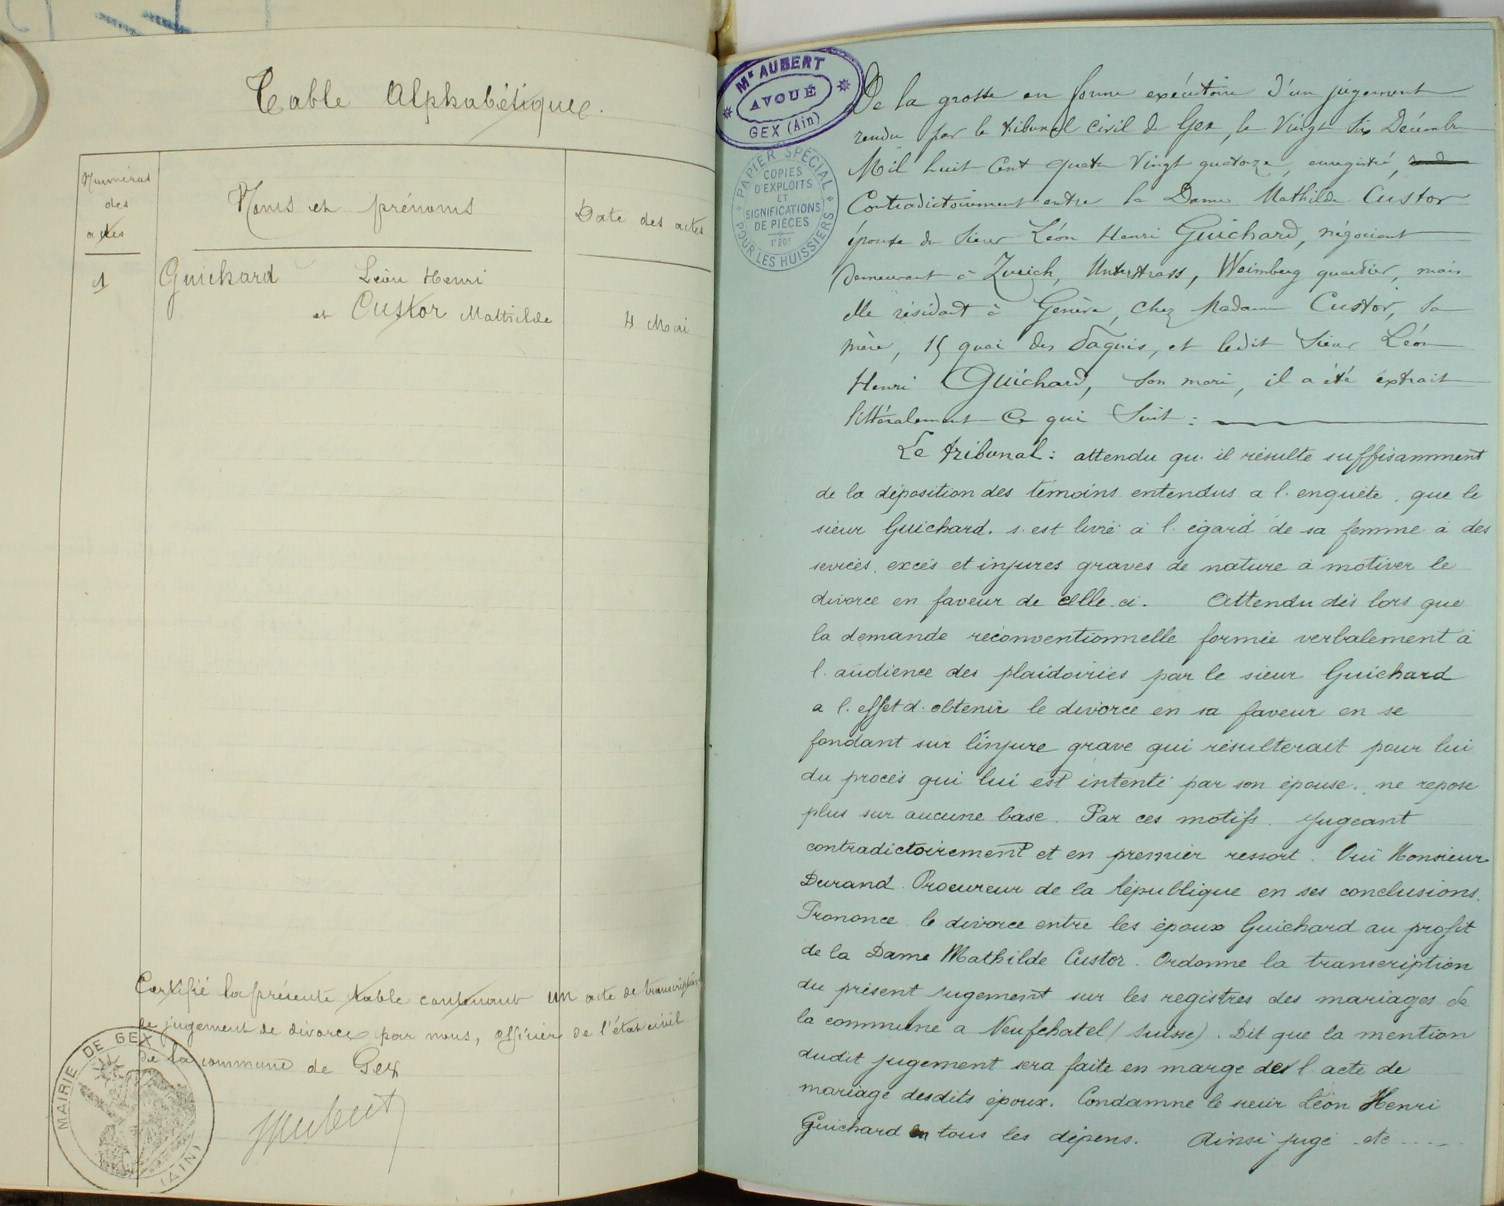 Table Alphabétique.
Numéros
des
actes
Noms et prénoms
Date des actes
1
Guichard Léon Henri
et Custor Mathilde
4 Mai
Certifié la présente table contenant un acte de transcription
de jugement de divorce par nous, officier de l'état civil
de la commune de Gex
MAIRIE DE GEX
(AIN)
Me AUBERT
AVOUÉ
GEX (Ain)
PAPIER SPÉCIAL
COPIES
D'EXPLOITS
ET
SIGNIFICATIONS
DE PIÈCES
POUR LES HUISSIERS
De la grosse en forme exécutoire d'un jugement
rendu par le tribunal civil de Gex, le vingt six Décembre
Mil huit Cent quatre Vingt quatorze, enregistré,
Contradictoirement entre la Dame Mathilde Custor
épouse de Sieur Léon Henri Guichard, négociant
demeurant à Zurich, Unterstrass, Weinberg quartier, mais
elle résidant à Genève, chez Madame Custor, sa
mère, 15 quai des Paquis, et ledit Sieur Léon
Henri Guichard, son mari, il a été extrait
littéralement ce qui suit :
Le tribunal : attendu qu'il résulte suffisamment
de la déposition des témoins entendus a l'enquête, que le
sieur Guichard. s'est livré à l'égard de sa femme à des
sevices, excés et injures graves de nature à motiver le
divorce en faveur de celle-ci. Attendu dès lors que
la demande reconventionnelle formée verbalement à
l'audience des plaidoiries par le sieur Guichard
a l'effet d'obtenir le divorce en sa faveur en se
fondant sur l'injure grave qui résulterait pour lui
du procès qui lui est intenté par son épouse, ne repose
plus sur aucune base. Par ces motifs. Jugeant
contradictoirement et en premier ressort. Ouï Monsieur
Durand Procureur de la République en ses conclusions.
Prononce le divorce entre les époux Guichard au profit
de la Dame Mathilde Custor. Ordonne la transcription
du présent jugement sur les registres des mariages de
la commune a Neufchatel (Suisse). Dit que la mention
dudit jugement sera faite en marge de l'acte de
mariage desdits époux. Condamne le sieur Léon Henri
Guichard en tous les dépens. Ainsi jugé etc....